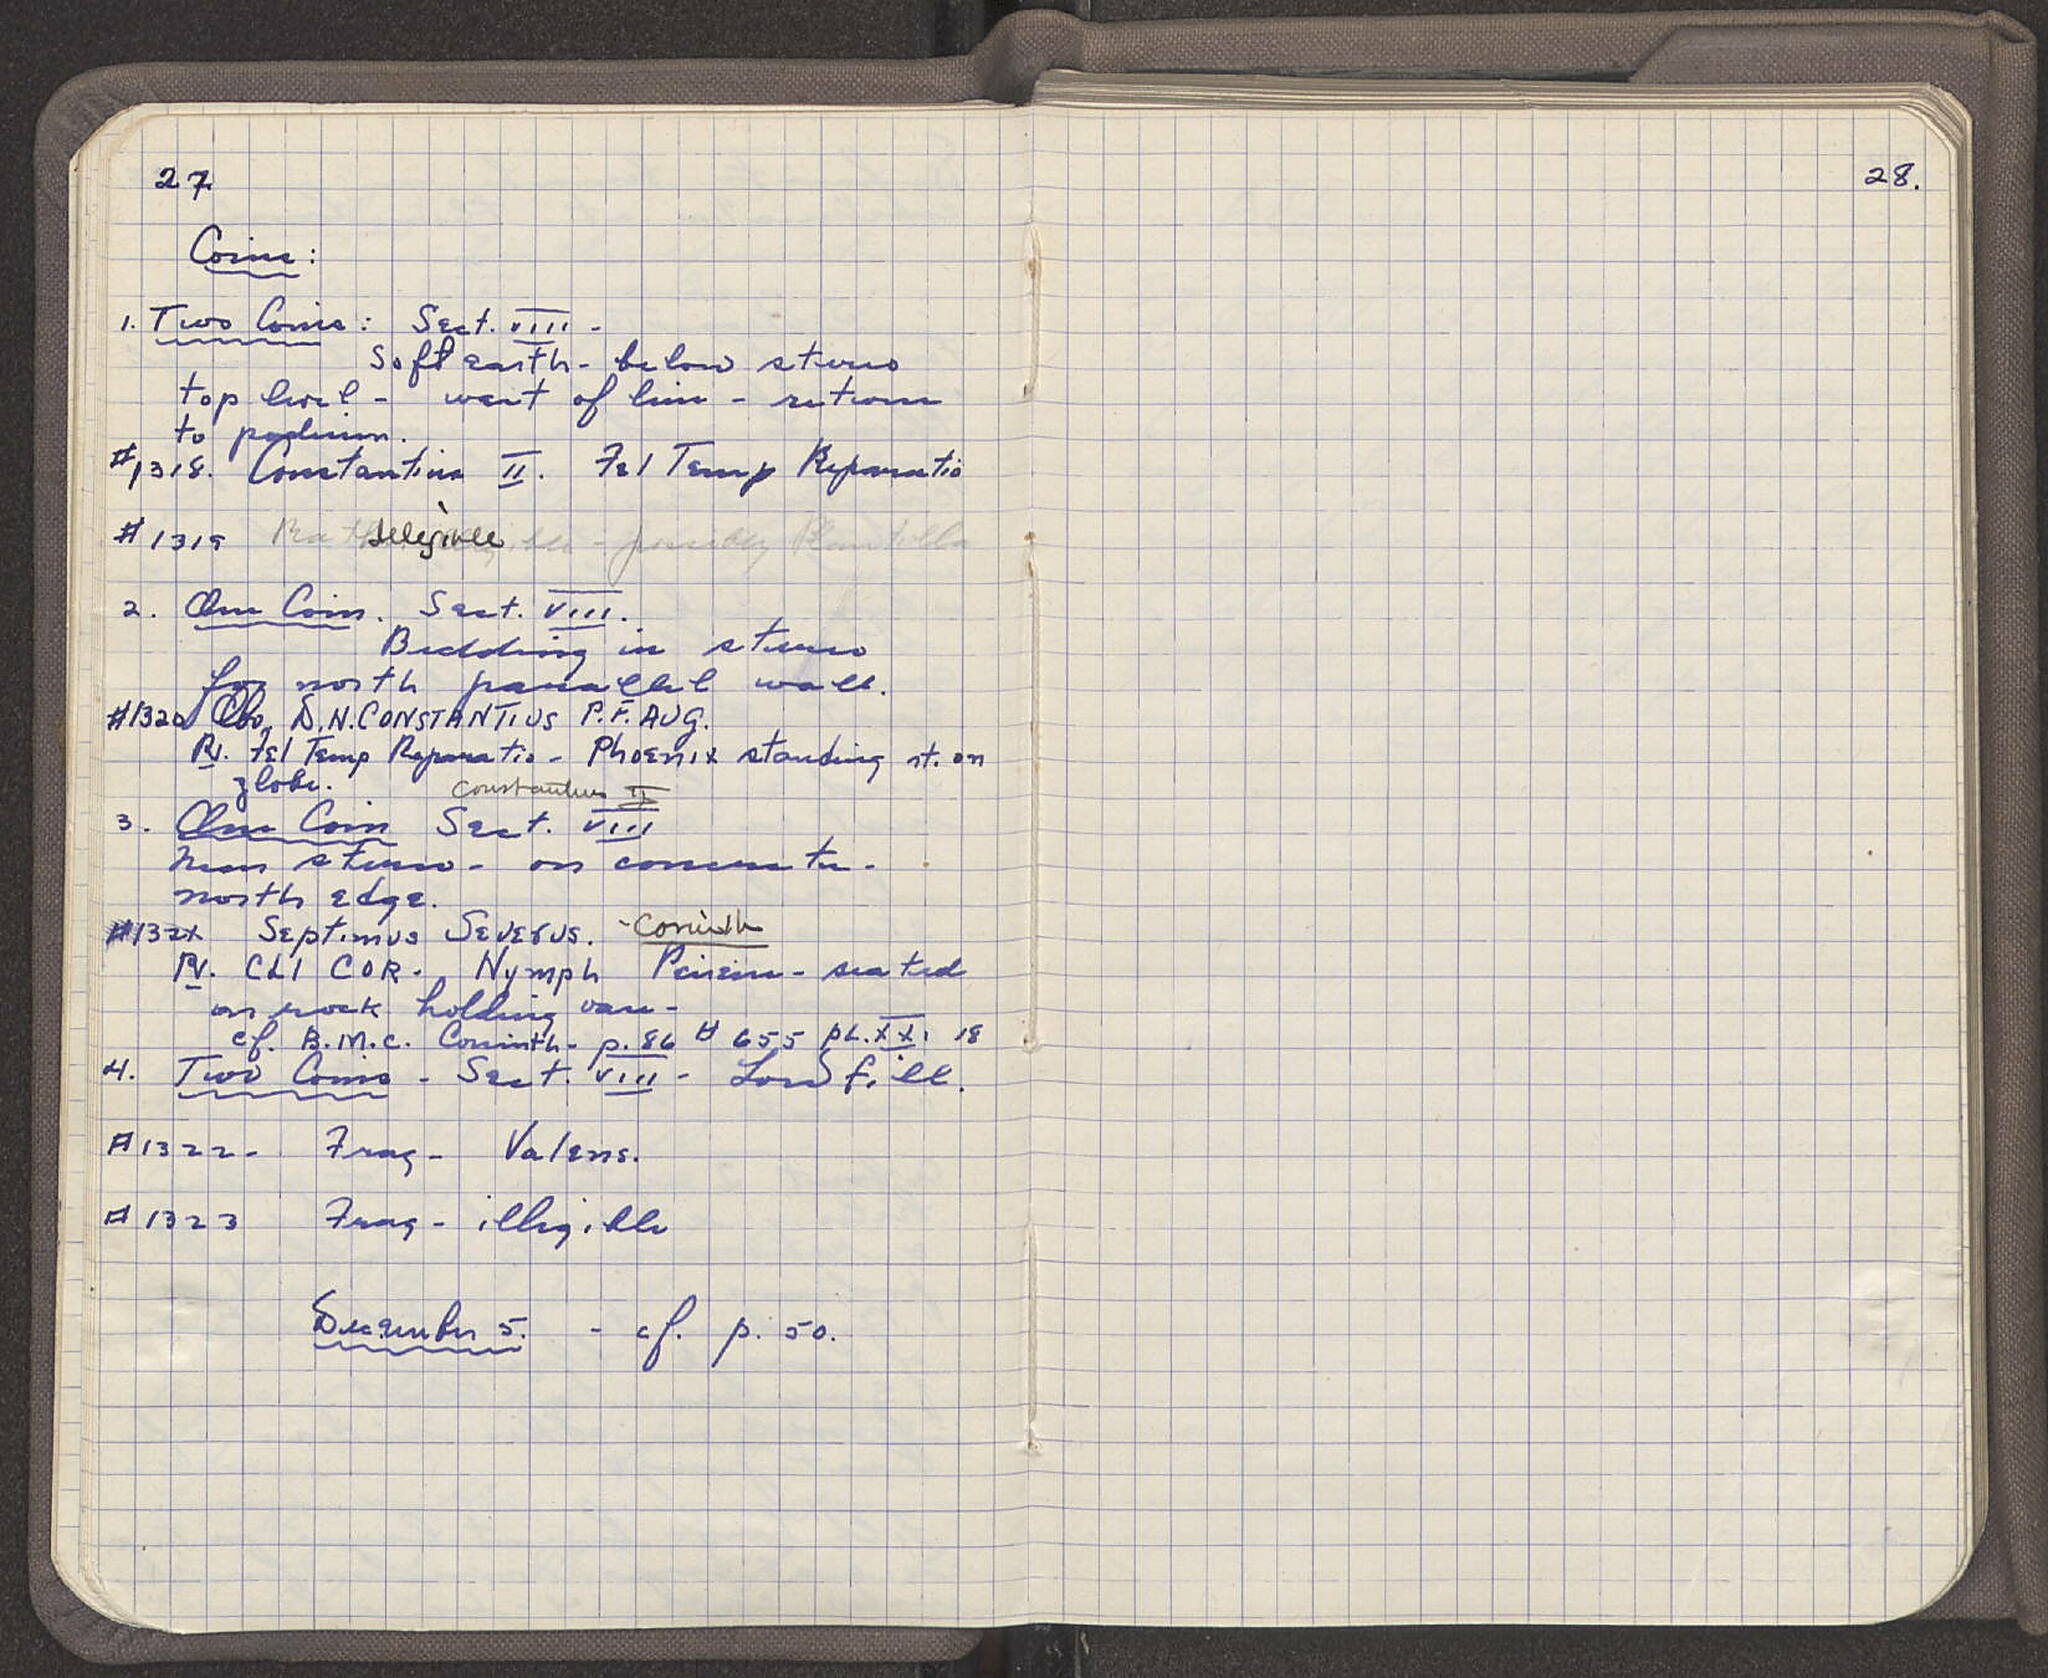 27.
Coins:
1. Two Coins: Sect. VIII -
Soft earth - below stereo
top level - west of line - return
to podium.
#1318. Constantius II. Fel Temp Reparatio
#1319 Illegible - possibly Plautilla
2. One Coin. Sect. VIII.
Bedding in stereo
for north parallel wall.
#1320 Obv. D.N. CONSTANTIUS P.F. AUG.
Rv. Fel Temp Reparatio - Phoenix standing rt. on
globe. Constantius II
3. One Coin Sect. VIII
Near stereo - on concrete -
north edge.
#1321 Septimus Severus. - Corinth
Rv. CLI COR. Nymph Peirene - seated
on rock holding vase -
cf. B.M.C. Corinth - p. 86 # 655 pl. XXI 18
4. Two Coins - Sect. VIII - Low fill.
#1322 - Frag - Valens.
#1323 Frag - illegible
December 5. - cf. p. 50.
28.